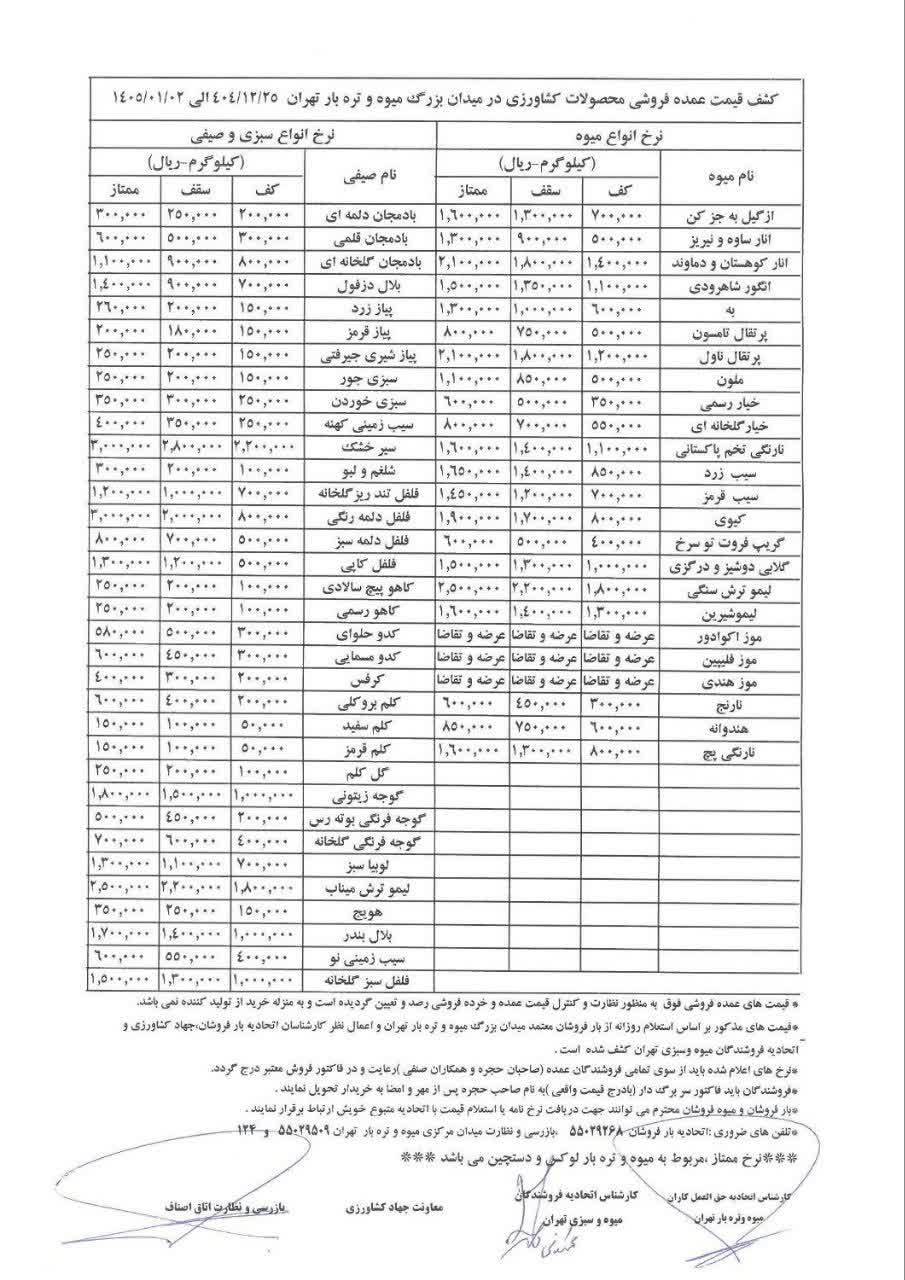 کشف قیمت عمده فروشی محصولات کشاورزی در میدان بزرگ میوه و تره بار تهران ۴۰۴/۱۲/۲۵ الی ۱۴۰۵/۰۱/۰۲
نرخ انواع میوه نرخ انواع سبزی و صیفی
نام میوه (کیلوگرم-ریال) نام صیفی (کیلوگرم-ریال)
کف سقف ممتاز کف سقف ممتاز
ازگیل به جز کن ۷۰۰,۰۰۰ ۱,۳۰۰,۰۰۰ ۱,۶۰۰,۰۰۰ بادمجان دلمه ای ۲۰۰,۰۰۰ ۲۵۰,۰۰۰ ۳۰۰,۰۰۰
انار ساوه و نیریز ۵۰۰,۰۰۰ ۹۰۰,۰۰۰ ۱,۳۰۰,۰۰۰ بادمجان قلمی ۳۰۰,۰۰۰ ۵۰۰,۰۰۰ ۶۰۰,۰۰۰
انار کوهستان و دماوند ۱,۴۰۰,۰۰۰ ۱,۸۰۰,۰۰۰ ۲,۱۰۰,۰۰۰ بادمجان گلخانه ای ۸۰۰,۰۰۰ ۹۰۰,۰۰۰ ۱,۱۰۰,۰۰۰
انگور شاهرودی ۱,۱۰۰,۰۰۰ ۱,۳۵۰,۰۰۰ ۱,۵۰۰,۰۰۰ بلال دزفول ۷۰۰,۰۰۰ ۹۰۰,۰۰۰ ۱,۴۰۰,۰۰۰
به ۶۰۰,۰۰۰ ۱,۰۰۰,۰۰۰ ۱,۳۰۰,۰۰۰ پیاز زرد ۱۵۰,۰۰۰ ۲۰۰,۰۰۰ ۲۶۰,۰۰۰
پرتقال تامسون ۵۰۰,۰۰۰ ۷۵۰,۰۰۰ ۸۰۰,۰۰۰ پیاز قرمز ۱۵۰,۰۰۰ ۱۸۰,۰۰۰ ۲۰۰,۰۰۰
پرتقال ناول ۱,۲۰۰,۰۰۰ ۱,۸۰۰,۰۰۰ ۲,۱۰۰,۰۰۰ پیاز شیری جیرفتی ۱۵۰,۰۰۰ ۲۰۰,۰۰۰ ۲۵۰,۰۰۰
ملون ۵۰۰,۰۰۰ ۸۵۰,۰۰۰ ۱,۱۰۰,۰۰۰ سبزی جور ۱۵۰,۰۰۰ ۲۰۰,۰۰۰ ۲۵۰,۰۰۰
خیار رسمی ۳۵۰,۰۰۰ ۵۰۰,۰۰۰ ۶۰۰,۰۰۰ سبزی خوردن ۲۵۰,۰۰۰ ۳۰۰,۰۰۰ ۳۵۰,۰۰۰
خیارگلخانه ای ۵۵۰,۰۰۰ ۷۰۰,۰۰۰ ۸۰۰,۰۰۰ سیب زمینی کهنه ۲۵۰,۰۰۰ ۳۵۰,۰۰۰ ۴۰۰,۰۰۰
نارنگی تخم پاکستانی ۱,۱۰۰,۰۰۰ ۱,۴۰۰,۰۰۰ ۱,۶۰۰,۰۰۰ سیر خشک ۲,۲۰۰,۰۰۰ ۲,۸۰۰,۰۰۰ ۳,۰۰۰,۰۰۰
سیب زرد ۸۵۰,۰۰۰ ۱,۴۰۰,۰۰۰ ۱,۶۵۰,۰۰۰ شلغم و لبو ۱۰۰,۰۰۰ ۲۰۰,۰۰۰ ۳۰۰,۰۰۰
سیب قرمز ۷۰۰,۰۰۰ ۱,۲۰۰,۰۰۰ ۱,۴۵۰,۰۰۰ فلفل تند ریز گلخانه ۷۰۰,۰۰۰ ۱,۰۰۰,۰۰۰ ۱,۲۰۰,۰۰۰
کیوی ۸۰۰,۰۰۰ ۱,۷۰۰,۰۰۰ ۱,۹۰۰,۰۰۰ فلفل دلمه رنگی ۸۰۰,۰۰۰ ۲,۰۰۰,۰۰۰ ۳,۰۰۰,۰۰۰
گریپ فروت تو سرخ ۴۰۰,۰۰۰ ۵۰۰,۰۰۰ ۶۰۰,۰۰۰ فلفل دلمه سبز ۵۰۰,۰۰۰ ۷۰۰,۰۰۰ ۸۰۰,۰۰۰
گلابی دوشیز و درگزی ۱,۰۰۰,۰۰۰ ۱,۳۰۰,۰۰۰ ۱,۵۰۰,۰۰۰ فلفل کاپی ۵۰۰,۰۰۰ ۱,۲۰۰,۰۰۰ ۱,۳۰۰,۰۰۰
لیمو ترش سنگی ۱,۸۰۰,۰۰۰ ۲,۲۰۰,۰۰۰ ۲,۵۰۰,۰۰۰ کاهو پیچ سالادی ۱۰۰,۰۰۰ ۲۰۰,۰۰۰ ۲۵۰,۰۰۰
لیموشیرین ۱,۳۰۰,۰۰۰ ۱,۴۰۰,۰۰۰ ۱,۶۰۰,۰۰۰ کاهو رسمی ۱۰۰,۰۰۰ ۲۰۰,۰۰۰ ۲۵۰,۰۰۰
موز اکوادور عرضه و تقاضا عرضه و تقاضا عرضه و تقاضا کدو حلوای ۳۰۰,۰۰۰ ۵۰۰,۰۰۰ ۵۸۰,۰۰۰
موز فلیپین عرضه و تقاضا عرضه و تقاضا عرضه و تقاضا کدو مسمایی ۳۰۰,۰۰۰ ۴۵۰,۰۰۰ ۶۰۰,۰۰۰
موز هندی عرضه و تقاضا عرضه و تقاضا عرضه و تقاضا کرفس ۲۰۰,۰۰۰ ۳۰۰,۰۰۰ ۴۰۰,۰۰۰
نارنج ۳۰۰,۰۰۰ ۴۵۰,۰۰۰ ۶۰۰,۰۰۰ کلم بروکلی ۲۰۰,۰۰۰ ۴۰۰,۰۰۰ ۶۰۰,۰۰۰
هندوانه ۶۰۰,۰۰۰ ۷۵۰,۰۰۰ ۸۵۰,۰۰۰ کلم سفید ۵۰,۰۰۰ ۱۰۰,۰۰۰ ۱۵۰,۰۰۰
نارنگی پج ۸۰۰,۰۰۰ ۱,۳۰۰,۰۰۰ ۱,۶۰۰,۰۰۰ کلم قرمز ۵۰,۰۰۰ ۱۰۰,۰۰۰ ۱۵۰,۰۰۰
گل کلم ۱۰۰,۰۰۰ ۲۰۰,۰۰۰ ۲۵۰,۰۰۰
گوجه زیتونی ۱,۰۰۰,۰۰۰ ۱,۵۰۰,۰۰۰ ۱,۸۰۰,۰۰۰
گوجه فرنگی بوته رس ۲۰۰,۰۰۰ ۴۵۰,۰۰۰ ۵۰۰,۰۰۰
گوجه فرنگی گلخانه ۴۰۰,۰۰۰ ۶۰۰,۰۰۰ ۷۰۰,۰۰۰
لوبیا سبز ۷۰۰,۰۰۰ ۱,۱۰۰,۰۰۰ ۱,۳۰۰,۰۰۰
لیمو ترش میناب ۱,۸۰۰,۰۰۰ ۲,۲۰۰,۰۰۰ ۲,۵۰۰,۰۰۰
هویج ۱۵۰,۰۰۰ ۲۵۰,۰۰۰ ۳۵۰,۰۰۰
بلال بندر ۱,۰۰۰,۰۰۰ ۱,۴۰۰,۰۰۰ ۱,۷۰۰,۰۰۰
سیب زمینی نو ۴۰۰,۰۰۰ ۵۵۰,۰۰۰ ۶۰۰,۰۰۰
فلفل سبز گلخانه ۱,۰۰۰,۰۰۰ ۱,۳۰۰,۰۰۰ ۱,۵۰۰,۰۰۰
* قیمت های عمده فروشی فوق به منظور نظارت و کنترل قیمت عمده و خرده فروشی رصد و تعیین گردیده است و به منزله خرید از تولید کننده نمی باشد.
*قیمت های مذکور بر اساس استعلام روزانه از بار فروشان معتمد میدان بزرگ میوه و تره بار تهران و اعمال نظر کارشناسان اتحادیه بار فروشان،جهاد کشاورزی و
اتحادیه فروشندگان میوه وسبزی تهران کشف شده است .
*نرخ های اعلام شده باید از سوی تمامی فروشندگان عمده (صاحبان حجره و همکاران صنفی )رعایت و در فاکتور فروش معتبر درج گردد.
*فروشندگان باید فاکتور سر برگ دار (بادرج قیمت واقعی )به نام صاحب حجره پس از مهر و امضا به خریدار تحویل نمایند .
*بار فروشان و میوه فروشان محترم می توانند جهت دریافت نرخ نامه یا استعلام قیمت با اتحادیه متبوع خویش ارتباط برقرار نمایند .
*تلفن های ضروری :اتحادیه بار فروشان ۵۵۰۲۹۲۶۸ ،بازرسی و نظارت میدان مرکزی میوه و تره بار تهران ۵۵۰۲۹۵۰۹ و ۱۲۴
***نرخ ممتاز ،مربوط به میوه و تره بار لوکس و دستچین می باشد ***
کارشناس اتحادیه حق العمل کاران کارشناس اتحادیه فروشندگان معاونت جهاد کشاورزی بازرسی و نظارت اتاق اصناف
میوه وتره بار تهران میوه و سبزی تهران